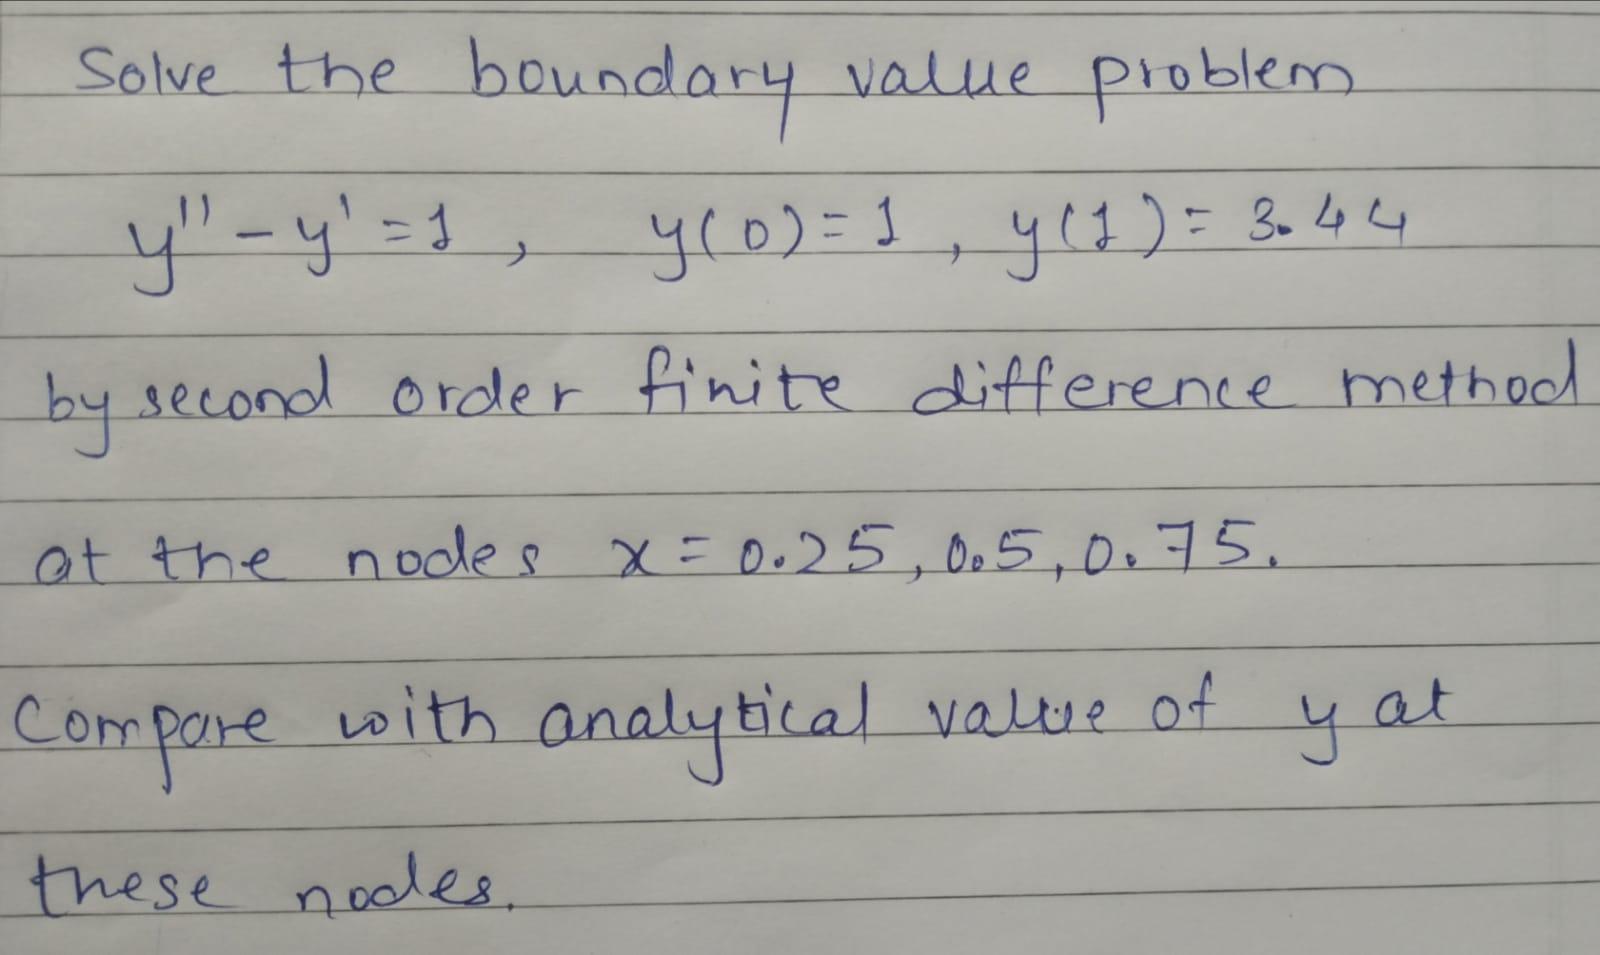 Solve the boundary value problem
y'' - y' = 1 , y(0) = 1 , y(1) = 3.44
by second order finite difference method
at the nodes x = 0.25, 0.5, 0.75.
Compare with analytical value of y at
these nodes.